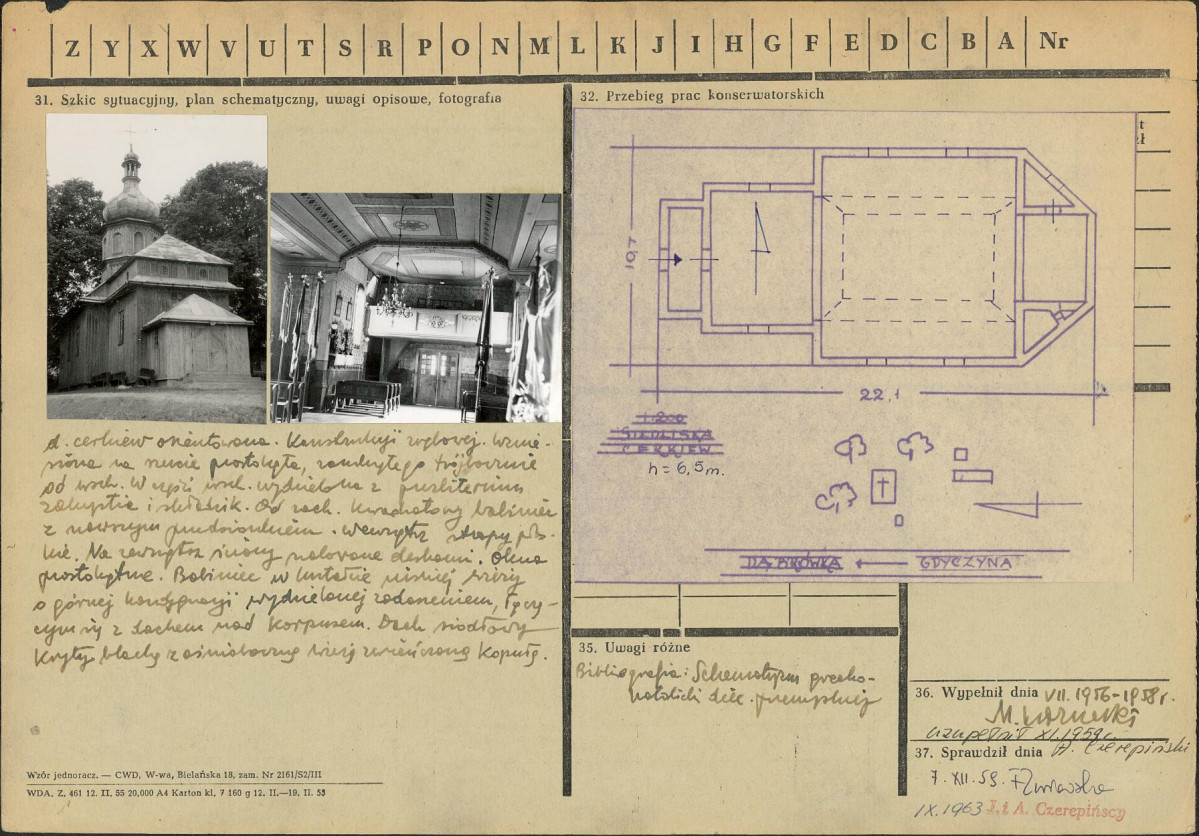 Z Y X W V U T S R P O N M L K J I H G F E D C B A Nr
31. Szkic sytuacyjny, plan schematyczny, uwagi opisowe, fotografia
d. cerkiew orientowana. Konstrukcji zrębowej. Wznie-
siona na rzucie prostokąta, zamkniętego trójbocznie
od wsch. W części wsch. wydzielona z prezbiterium
zakrystia i składzik. Od zach. kwadratowy babiniec
z nowszym przedsionkiem. Wewnątrz stropy płas-
kie. Na zewnątrz ściany szalowane deskami. Okna
prostokątne. Babiniec w kształcie niskiej wieży
o górnej kondygnacji wydzielonej zadaszeniem, łączą-
cym się z dachem nad korpusem. Dach siodłowy
kryty blachą z ośmioboczną wieżą zwieńczoną kopułą.
Wzór jednoracz. — CWD, W-wa, Bielańska 18, zam. Nr 2161/S2/III
WDA, Z. 461 12. II. 55 20,000 A4 Karton kl. 7 160 g 12. II.—19. II. 55
32. Przebieg prac konserwatorskich
10,7
22,1
1:200
SIEDLISKA
CERKIEW
h = 6,5 m.
DĄBRÓWKA ← GDYCZYNA
35. Uwagi różne
Bibliografia: Schematyzm grecko-
katolicki diec. przemyskiej
36. Wypełnił dnia VII. 1956-1958 r.
uzupełnił XI. 1959 r.
A. Czerepiński
37. Sprawdził dnia
7. XII. 59.
IX. 1963 J. i A. Czerepińscy